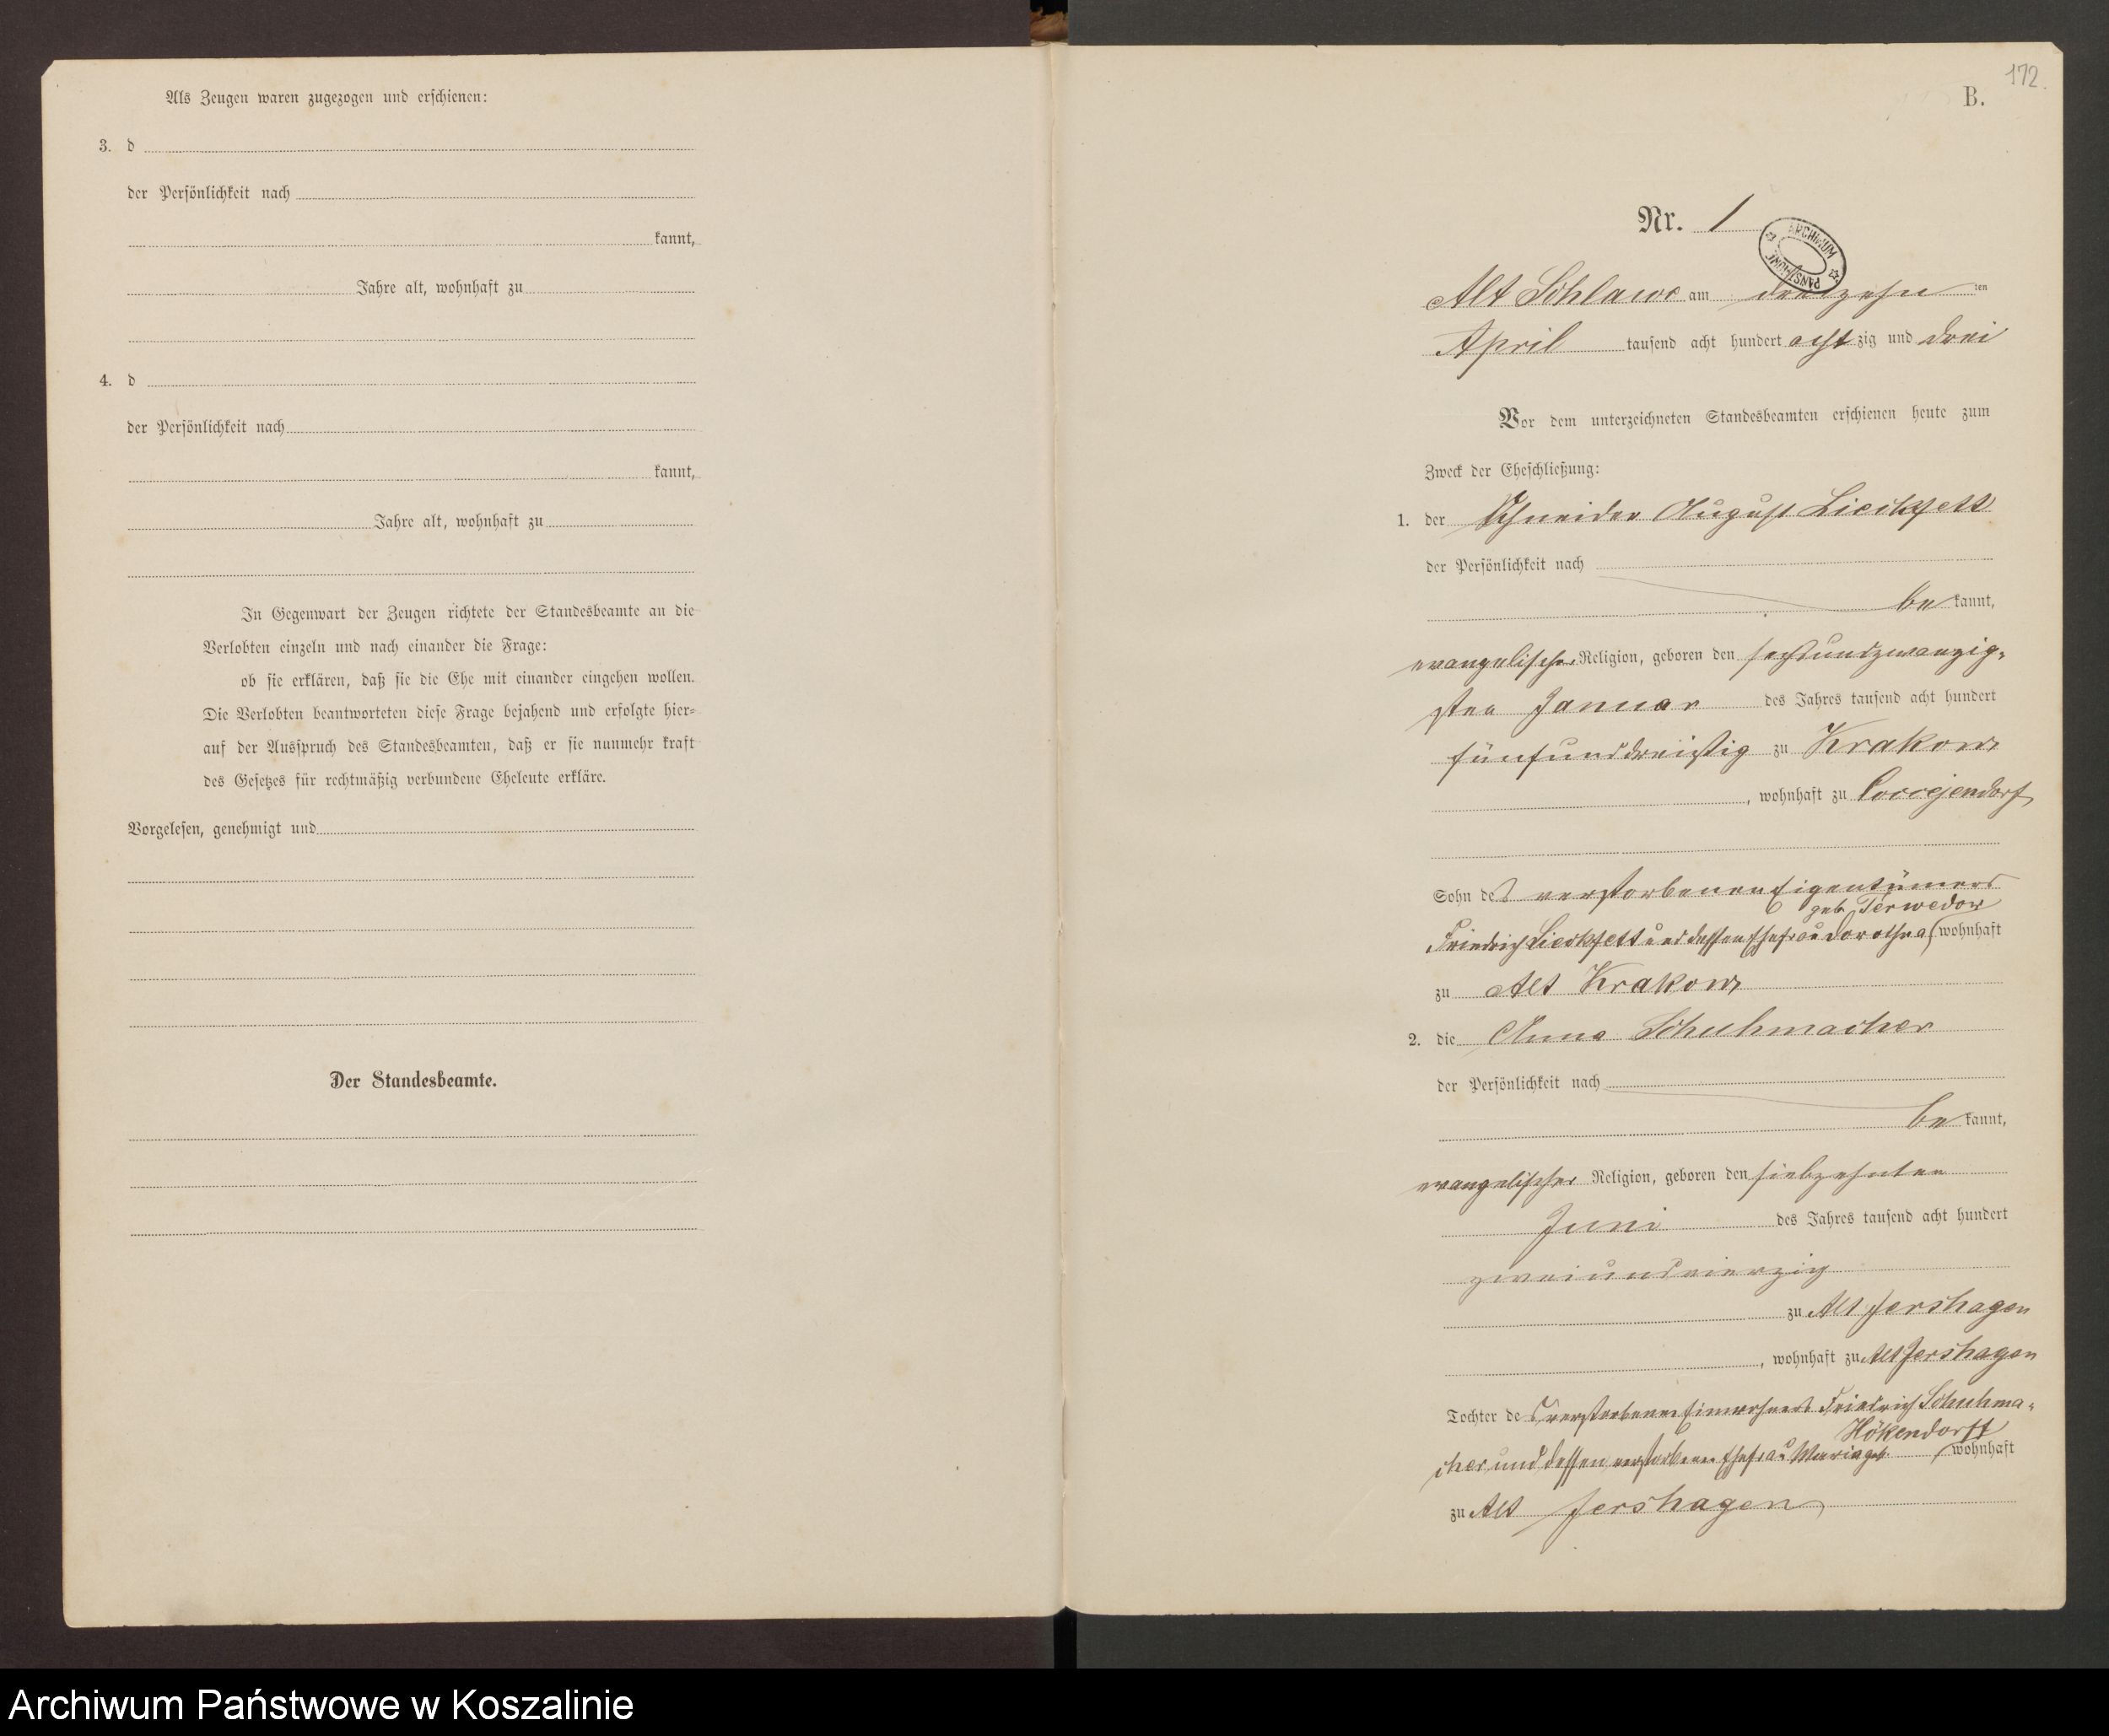 Als Zeugen waren zugezogen und erschienen:
3. d
der Persönlichkeit nach
kannt,
Jahre alt, wohnhaft zu
4. d
der Persönlichkeit nach
kannt,
Jahre alt, wohnhaft zu
In Gegenwart der Zeugen richtete der Standesbeamte an die
Verlobten einzeln und nach einander die Frage:
ob sie erklären, daß sie die Ehe mit einander eingehen wollen.
Die Verlobten beantworteten diese Frage bejahend und erfolgte hier=
auf der Ausspruch des Standesbeamten, daß er sie nunmehr kraft
des Gesetzes für rechtmäßig verbundene Eheleute erkläre.
Vorgelesen, genehmigt und
Der Standesbeamte.
172.
B.
Nr. 1
ARCHIWUM PAŃSTWOWE
Alt Schlawe am dreizehn ten
April tausend acht hundert acht zig und drei
Vor dem unterzeichneten Standesbeamten erschienen heute zum
Zweck der Eheschließung:
1. der Schneider August Liedtkfett
der Persönlichkeit nach
be kannt,
evangelischer Religion, geboren den sechsundzwanzig=
sten Januar des Jahres tausend acht hundert
fünfunddreißig zu Krakow
, wohnhaft zu Coccejendorf
Sohn des verstorbenen Eigentümers
geb. Terwedow
Friedrich und dessen Ehefrau Dorothea wohnhaft
zu Alt Krakow
2. die Anna Schuhmacher
der Persönlichkeit nach
be kannt,
evangelischer Religion, geboren den siebzehnten
Juni des Jahres tausend acht hundert
zweiundvierzig
zu Alt Jershagen
, wohnhaft zu Alt Jershagen
Tochter des verstorbenen Einwohners Friedrich Schuhma=
Hökendorff
cher und dessen verstorbenen Ehefrau Maria geb. wohnhaft
zu Alt Jershagen
Archiwum Państwowe w Koszalinie